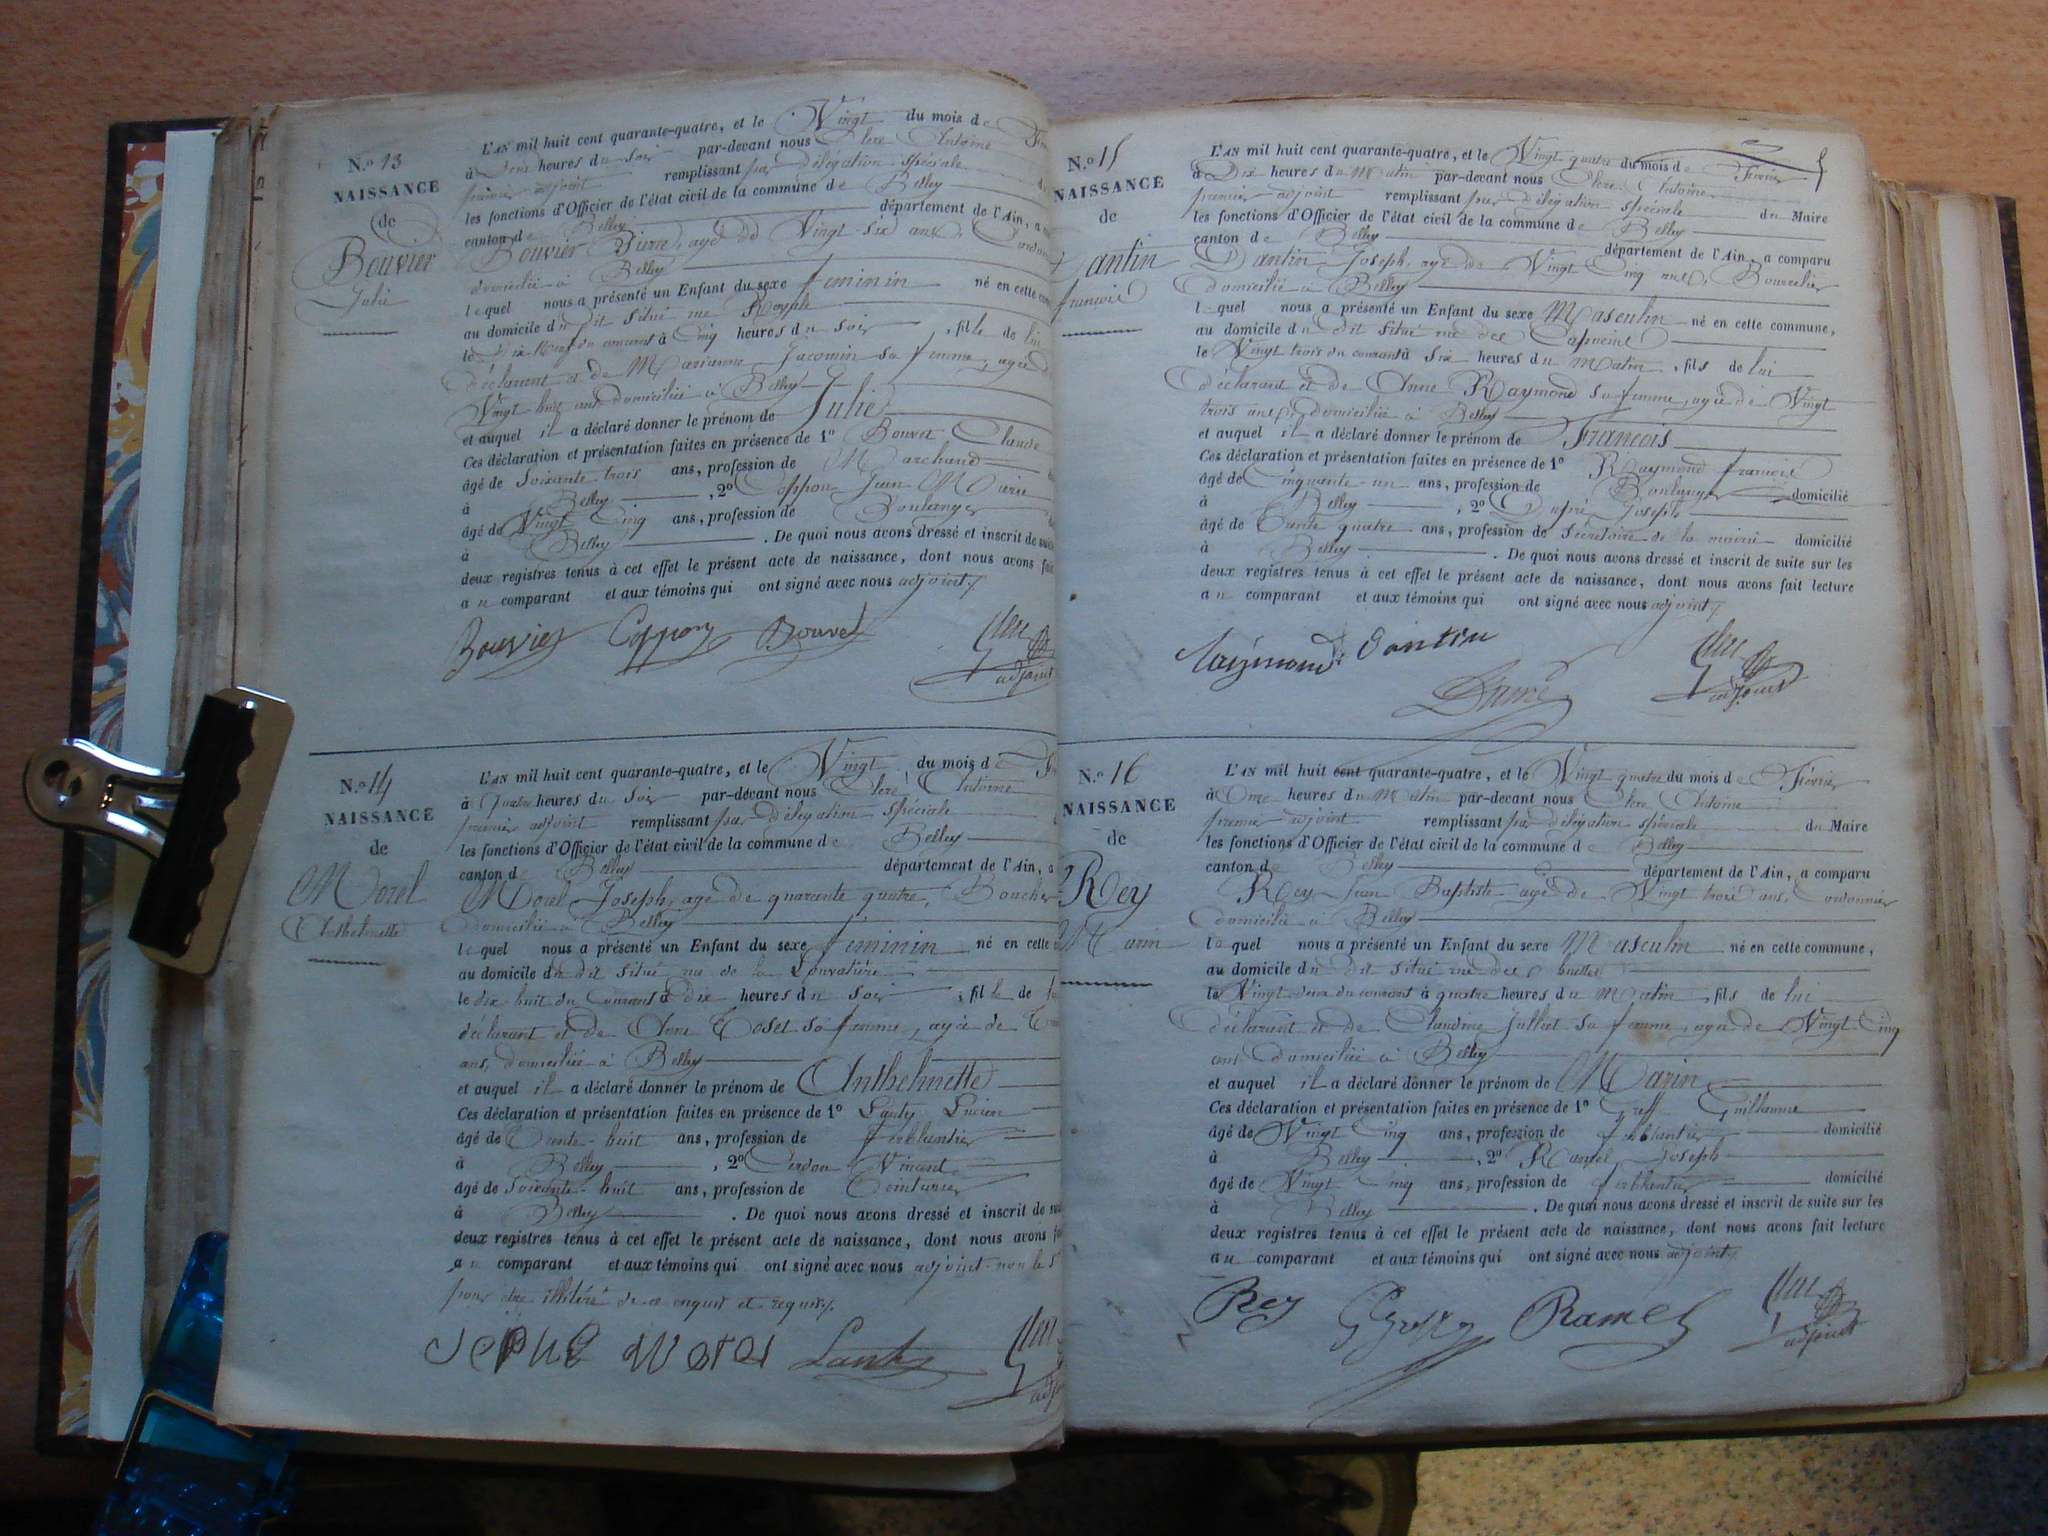 N.º 13
NAISSANCE
de
Bouvier
Julie
L'AN mil huit cent quarante-quatre, et le Vingt du mois de
à heures du Soir par-devant nous Clerc Antoine
premier adjoint remplissant par délégation spéciale
les fonctions d'Officier de l'état civil de la commune de Belley
canton de Belley département de l'Ain, a
Bouvier Pierre, agé de Vingt six ans,
domicilié à Belley
lequel nous a présenté un Enfant du sexe feminin né en cette
au domicile du dit situé rue Royale
le dix-Neuf du courant à Cinq heures du soir, fille de lui
déclarant et de Marianne Jacomin sa femme, agée
Vingt huit ans domiciliée à Belley
et auquel il a déclaré donner le prénom de Julie
Ces déclaration et présentation faites en présence de 1º Bouvet Claude
âgé de Soixante trois ans, profession de Marchand
à Belley, 2º Coppon Jean Marie
âgé de Vingt Cinq ans, profession de Boulanger
à Belley. De quoi nous avons dressé et inscrit de suite
deux registres tenus à cet effet le présent acte de naissance, dont nous avons fait
au comparant et aux témoins qui ont signé avec nous adjoint
Bouvier Coppon Bouvet
adjoint
N.º 14
NAISSANCE
de
Morel
Anthelmette
L'AN mil huit cent quarante-quatre, et le Vingt du mois de
à Quatre heures du Soir par-devant nous Clerc Antoine
premier adjoint remplissant par délégation spéciale
les fonctions d'Officier de l'état civil de la commune de Belley
canton de Belley département de l'Ain, a
Morel Joseph, agé de quarante quatre, Boucher
domicilié à Belley
lequel nous a présenté un Enfant du sexe feminin né en cette
au domicile du dit situé rue de la
le dix huit du Courant à dix heures du soir, fille de
déclarant et de Anne sa femme, agée de
ans, domiciliée à Belley
et auquel il a déclaré donner le prénom de Anthelmette
Ces déclaration et présentation faites en présence de 1º Lucien
âgé de Trente-huit ans, profession de ferblantier
à Belley, 2º Cerdon Vincent
âgé de Soixante-huit ans, profession de Teinturier
à Belley. De quoi nous avons dressé et inscrit de
deux registres tenus à cet effet le présent acte de naissance, dont nous avons
au comparant et aux témoins qui ont signé avec nous adjoint non le
pour être illitéré de ce enquis et requis
Morel
N.º 15
NAISSANCE
de
Dantin
françois
L'AN mil huit cent quarante-quatre, et le Vingt quatre du mois de Février
à Dix heures du Matin par-devant nous Clerc Antoine
premier adjoint remplissant par délégation spéciale du Maire
les fonctions d'Officier de l'état civil de la commune de Belley
canton de Belley département de l'Ain, a comparu
Dantin Joseph, agé de Vingt Cinq ans, Bourrelier
domicilié à Belley
lequel nous a présenté un Enfant du sexe Masculin né en cette commune,
au domicile du dit situé rue des Capucins
le Vingt trois du courant à Six heures du Matin, fils de lui
déclarant et de Anne Raymond sa femme, agée de Vingt
trois ans, domiciliée à Belley
et auquel il a déclaré donner le prénom de François
Ces déclaration et présentation faites en présence de 1º Raymond françois
âgé de Cinquante-un ans, profession de Boulanger domicilié
à Belley, 2º Dupré Joseph
âgé de Trente quatre ans, profession de Secrétaire de la mairie domicilié
à Belley. De quoi nous avons dressé et inscrit de suite sur les
deux registres tenus à cet effet le présent acte de naissance, dont nous avons fait lecture
au comparant et aux témoins qui ont signé avec nous adjoint
Raymond Dantin
adjoint
N.º 16
NAISSANCE
de
Rey
Marin
L'AN mil huit cent quarante-quatre, et le Vingt quatre du mois de Février
à Onze heures du Matin par-devant nous Clerc Antoine
premier adjoint remplissant par délégation spéciale du Maire
les fonctions d'Officier de l'état civil de la commune de Belley
canton de Belley département de l'Ain, a comparu
Rey Jean Baptiste agé de Vingt trois ans, Cordonnier
domicilié à Belley
lequel nous a présenté un Enfant du sexe Masculin né en cette commune,
au domicile du dit situé rue des
le Vingt deux du courant à quatre heures du Matin, fils de lui
déclarant et de Claudine Julliet sa femme, agée de Vingt Cinq
ans domiciliée à Belley
et auquel il a déclaré donner le prénom de Marin
Ces déclaration et présentation faites en présence de 1º Guillaume
âgé de Vingt Cinq ans, profession de ferblantier domicilié
à Belley, 2º Ramel Joseph
âgé de Vingt Cinq ans, profession de ferblantier domicilié
à Belley. De quoi nous avons dressé et inscrit de suite sur les
deux registres tenus à cet effet le présent acte de naissance, dont nous avons fait lecture
au comparant et aux témoins qui ont signé avec nous adjoint
Rey Ramel
adjoint